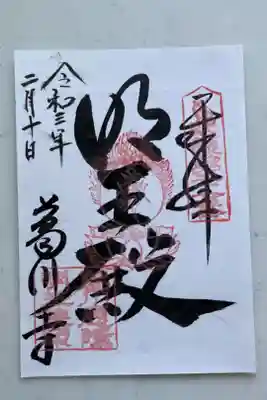 奉拝
明王殿
葛川寺
令和三年
二月十日